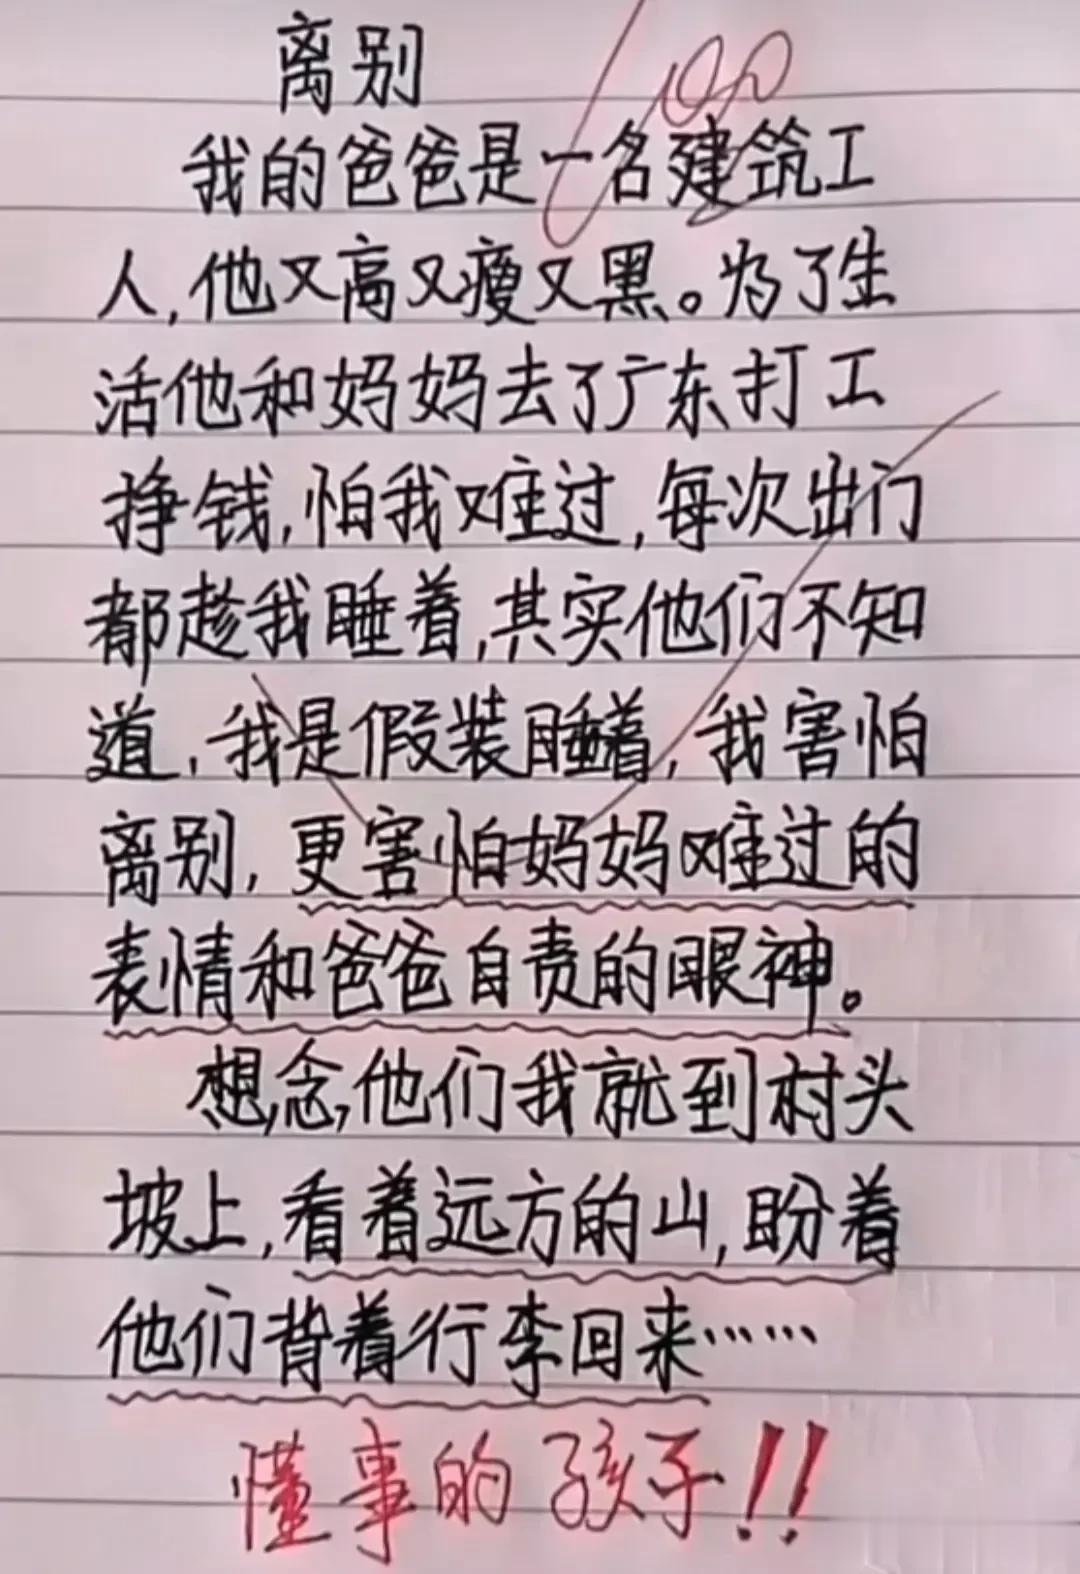 离别
100
我的爸爸是一名建筑工
人,他又高又瘦又黑。为了生
活他和妈妈去了广东打工
挣钱,怕我难过,每次出门
都趁我睡着,其实他们不知
道,我是假装睡着,我害怕
离别,更害怕妈妈难过的
表情和爸爸自责的眼神。
想念他们我就到村头
坡上,看着远方的山,盼着
他们背着行李回来……
懂事的孩子!!